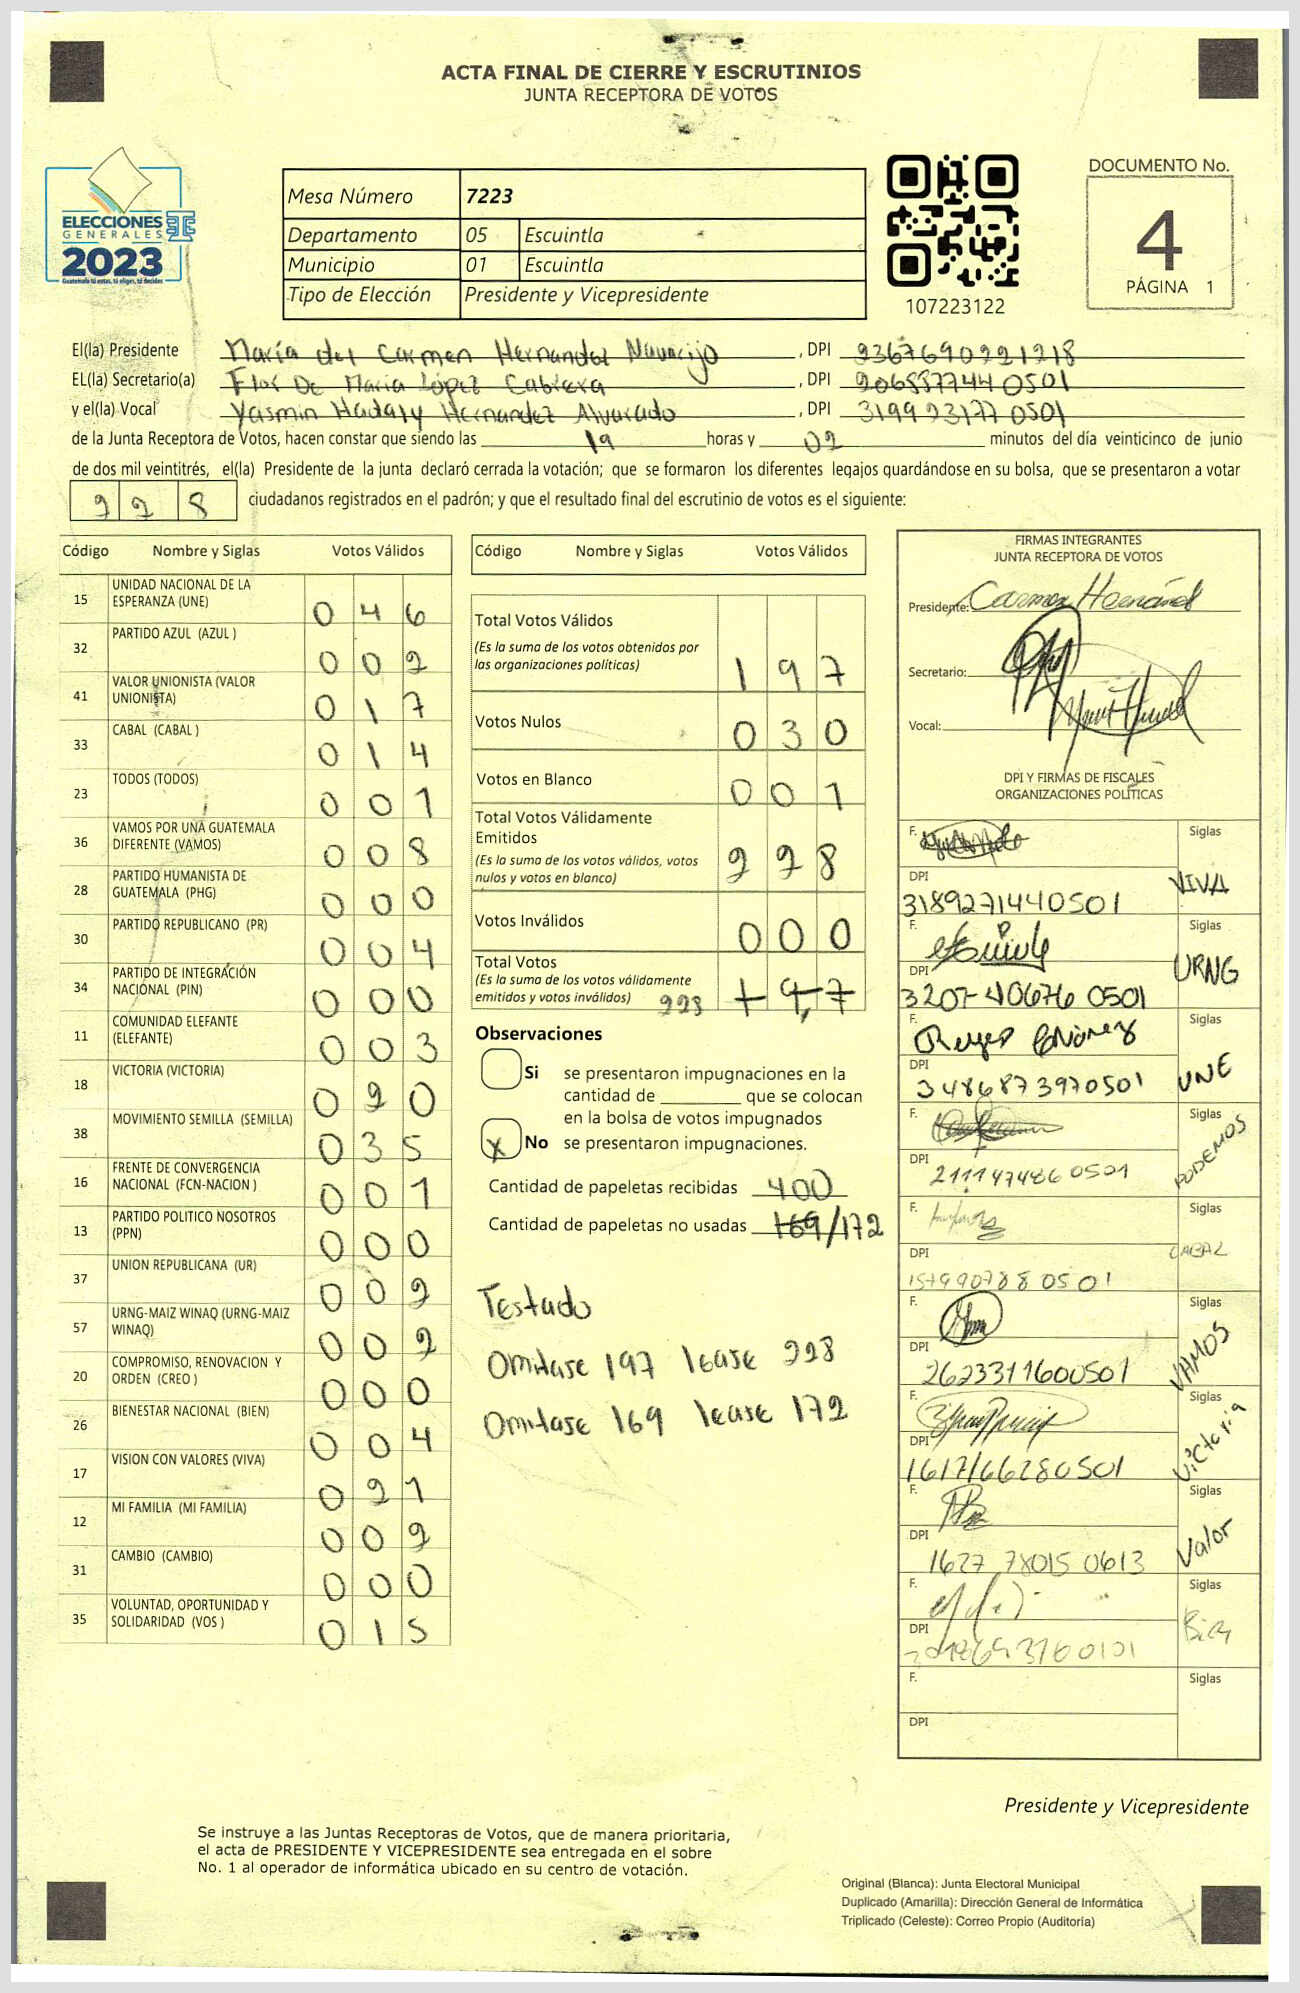 ACTA FINAL DE CIERRE Y ESCRUTINIOS
JUNTA RECEPTORA DE VOTOS
ELECCIONES
GENERALES
2023
Guatemala tú estas, tú eliges, tú decides
Mesa Número 7223
Departamento 05 Escuintla
Municipio 01 Escuintla
Tipo de Elección Presidente y Vicepresidente
107223122
DOCUMENTO No.
4
PÁGINA 1
El(la) Presidente María del Carmen Hernandez , DPI 2367690221218
EL(la) Secretario(a) Flor De María López Cabrera , DPI 2065877440501
y el(la) Vocal Yasmin Hadaly Hernandez Alvarado , DPI 3199231770501
de la Junta Receptora de Votos, hacen constar que siendo las 19 horas y 02 minutos del día veinticinco de junio
de dos mil veintitrés, el(la) Presidente de la junta declaró cerrada la votación; que se formaron los diferentes legajos quardándose en su bolsa, que se presentaron a votar
228 ciudadanos registrados en el padrón; y que el resultado final del escrutinio de votos es el siguiente:
Código Nombre y Siglas Votos Válidos
15 UNIDAD NACIONAL DE LA ESPERANZA (UNE) 046
32 PARTIDO AZUL (AZUL ) 002
41 VALOR UNIONISTA (VALOR UNIONISTA) 017
33 CABAL (CABAL ) 014
23 TODOS (TODOS) 001
36 VAMOS POR UNA GUATEMALA DIFERENTE (VAMOS) 008
28 PARTIDO HUMANISTA DE GUATEMALA (PHG) 000
30 PARTIDO REPUBLICANO (PR) 004
34 PARTIDO DE INTEGRACIÓN NACIONAL (PIN) 000
11 COMUNIDAD ELEFANTE (ELEFANTE) 003
18 VICTORIA (VICTORIA) 020
38 MOVIMIENTO SEMILLA (SEMILLA) 035
16 FRENTE DE CONVERGENCIA NACIONAL (FCN-NACION ) 001
13 PARTIDO POLITICO NOSOTROS (PPN) 000
37 UNION REPUBLICANA (UR) 002
57 URNG-MAIZ WINAQ (URNG-MAIZ WINAQ) 002
20 COMPROMISO, RENOVACION Y ORDEN (CREO ) 000
26 BIENESTAR NACIONAL (BIEN) 004
17 VISION CON VALORES (VIVA) 021
12 MI FAMILIA (MI FAMILIA) 002
31 CAMBIO (CAMBIO) 000
35 VOLUNTAD, OPORTUNIDAD Y SOLIDARIDAD (VOS ) 015
Código Nombre y Siglas Votos Válidos
Total Votos Válidos
(Es la suma de los votos obtenidos por
las organizaciones políticas) 197
Votos Nulos 030
Votos en Blanco 001
Total Votos Válidamente
Emitidos
(Es la suma de los votos válidos, votos
nulos y votos en blanco) 228
Votos Inválidos 000
Total Votos
(Es la suma de los votos válidamente
emitidos y votos inválidos) 228 197
Observaciones
Si se presentaron impugnaciones en la
cantidad de ________ que se colocan
en la bolsa de votos impugnados
X No se presentaron impugnaciones.
Cantidad de papeletas recibidas 400
Cantidad de papeletas no usadas 169/172
Testado
Omitase 197 lease 228
Omitase 169 lease 172
FIRMAS INTEGRANTES
JUNTA RECEPTORA DE VOTOS
Presidente: Carmen Hernández
Secretario:
Vocal:
DPI Y FIRMAS DE FISCALES
ORGANIZACIONES POLÍTICAS
F. Siglas
DPI VIVA
3189271440501
F. Siglas
DPI URNG
3207406760501
F. Siglas
DPI UNE
3486873970501
F. Siglas
DPI PODEMOS
2111474860501
F. Siglas
DPI CABAL
F. Siglas
DPI VAMOS
2623311600501
F. Siglas
DPI Victoria
1617166280501
F. Siglas
DPI Valor
1627 78015 0613
F. Siglas
DPI
F. Siglas
DPI
Presidente y Vicepresidente
Se instruye a las Juntas Receptoras de Votos, que de manera prioritaria,
el acta de PRESIDENTE Y VICEPRESIDENTE sea entregada en el sobre
No. 1 al operador de informática ubicado en su centro de votación.
Original (Blanca): Junta Electoral Municipal
Duplicado (Amarilla): Dirección General de Informática
Triplicado (Celeste): Correo Propio (Auditoría)